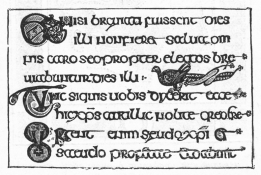 Et nisi breuiati fuissent dies
illi non fieret salua om
nis caro sed propter electos bre
uiabuntur dies illi :
Tunc si quis uobis dixerit ecce
hic xps aut illic nolite
enim seudo xpi
seudo